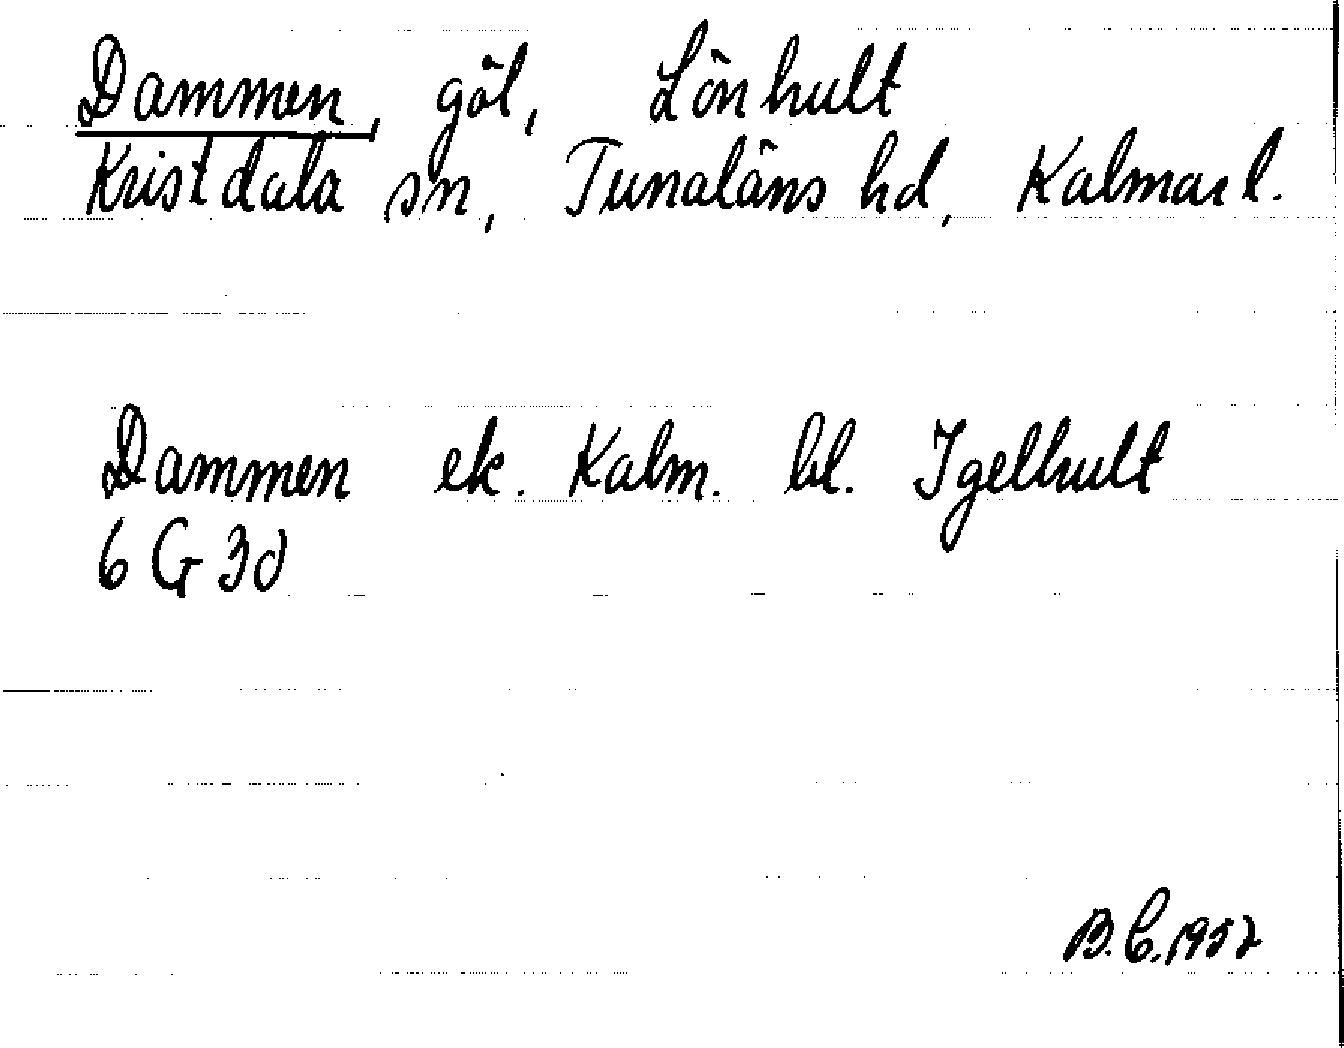 Dammen, göl, Lönhult
Kristdala sn, Tunaläns hd, Kalmar l.
Dammen ek. Kalm. bl. Igelhult
6 G 3d
B.C. 1952